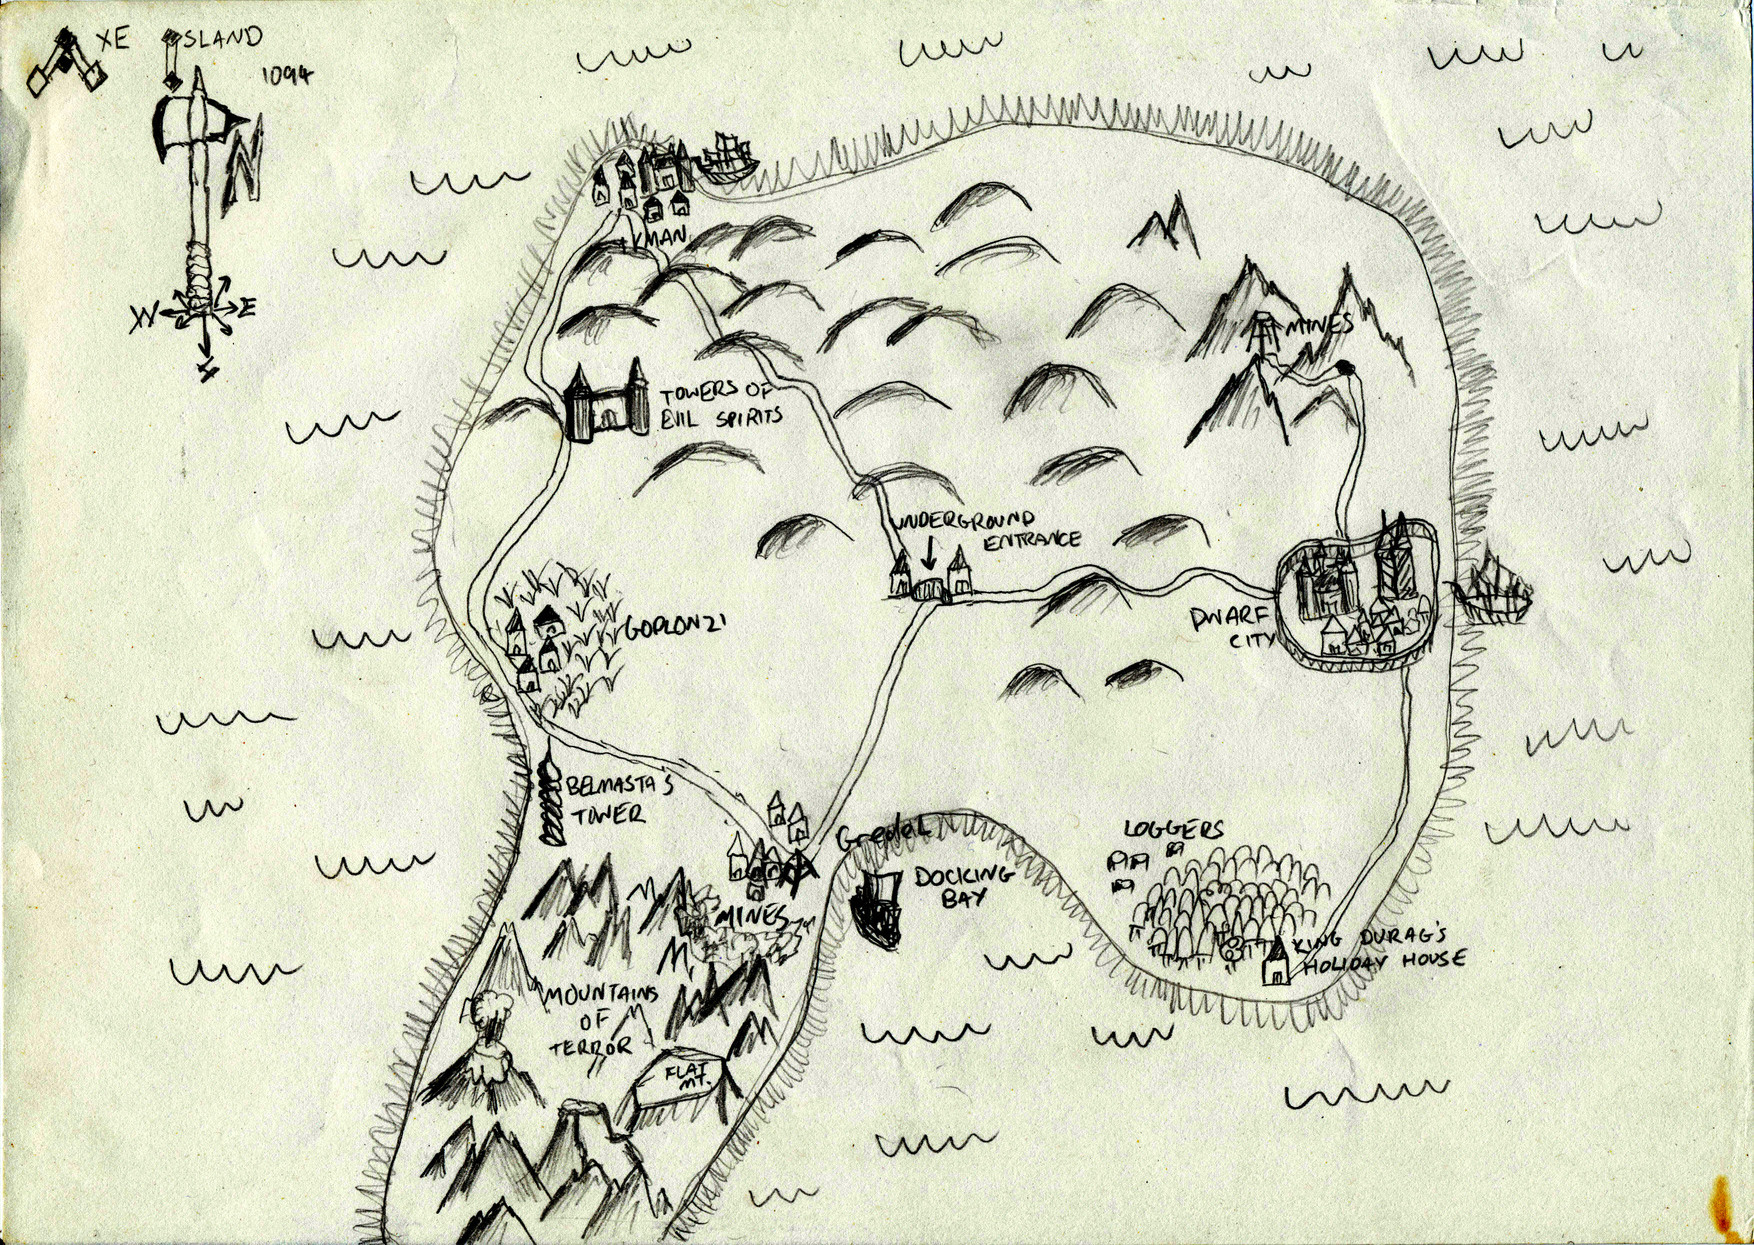 AXE ISLAND
1094
N
W E
S
IKMAN
MINES
TOWERS OF
EVIL SPIRITS
UNDERGROUND
ENTRANCE
GORLONZI
DWARF
CITY
BELMASTA'S
TOWER
Gredal
LOGGERS
DOCKING
BAY
MINES
KING DURAG'S
HOLIDAY HOUSE
MOUNTAINS
OF
TERROR
FLAT
MT.